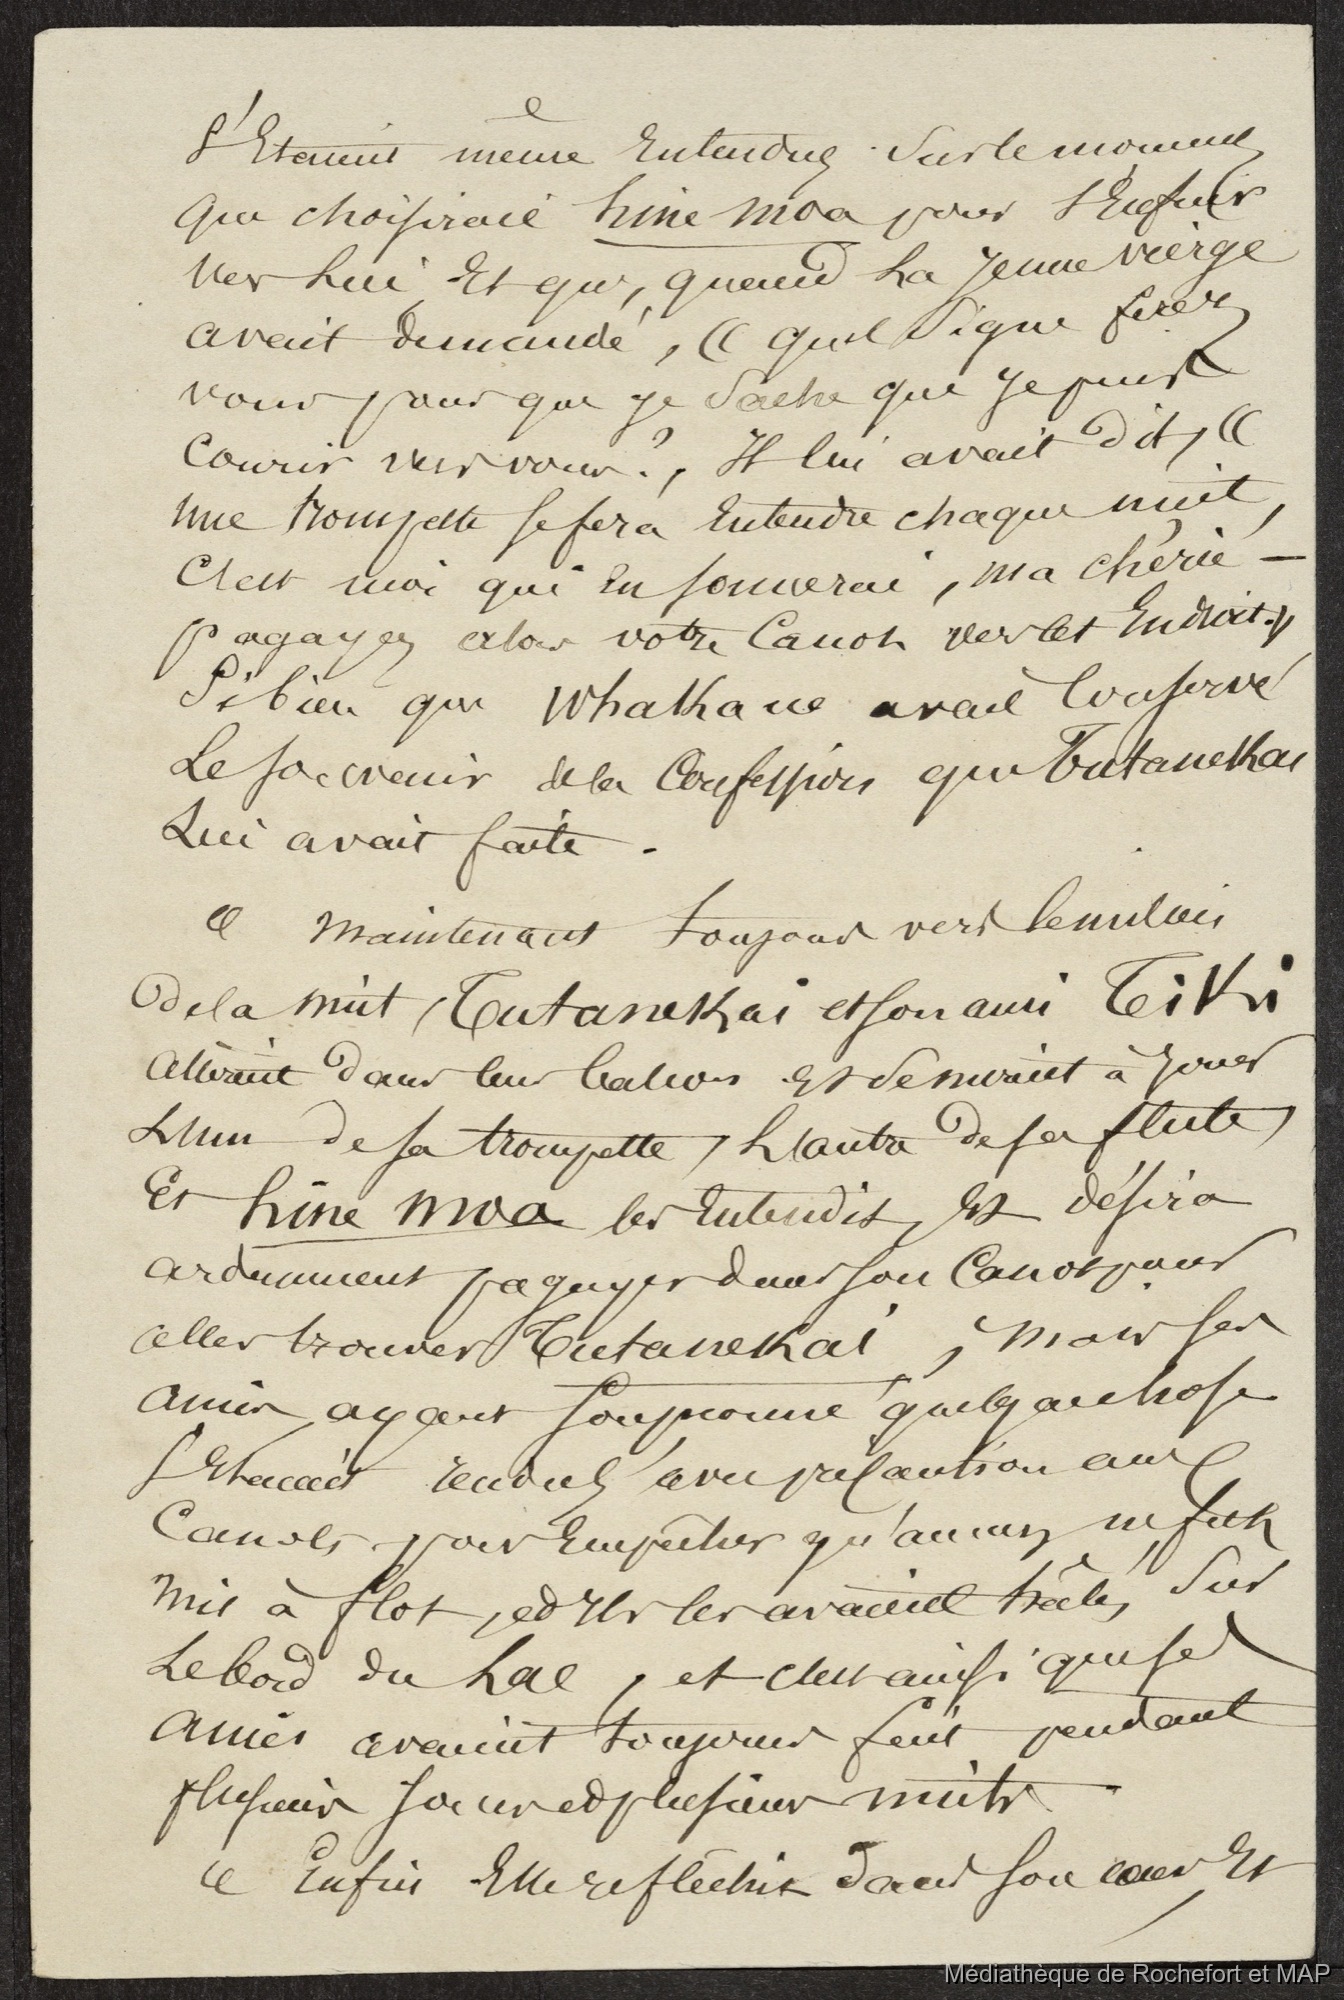 s'Etaient même Entendus sur le moment
que choisirait hine moa pour s'Enfuir
vers Lui, Et que, quand La jeune vierge
avait demandé, « quel signe ferez
vous pour que je sache que je puis
Courir vers vous ?, Il lui avait dit, «
une trompette se fera Entendre chaque nuit,
C'est moi qui En sonnerai, ma chérie —
pagayez alors votre Canot vers cet Endroit »
Si bien que Whakaue avait Conservé
Le souvenir de la Confession que Tutanekai
Lui avait faite.
« Maintenant toujours vers le milieu
De la nuit, Tutanekai et son ami Tiki
allaient dans leur balcon Et se mirent à jouer
L'un de sa trompette, L'autre de sa flute,
Et hine moa les Entendit, Et désira
ardemment pagayer dans son Canot pour
aller trouver Tutanekai, Mais ses
amis, ayant soupçonné quelque chose
s'Etaient rendus avec précaution aux
Canots pour Empêcher qu'aucun ne fut
mis à flot, et Ils les avaient halés, sur
Le bord du Lac, et c'est ainsi que ses
amis avaient toujours fait pendant
plusieurs jours et plusieurs nuits.
« Enfin Elle réfléchit dans son cœur Et
Médiathèque de Rochefort et MAP